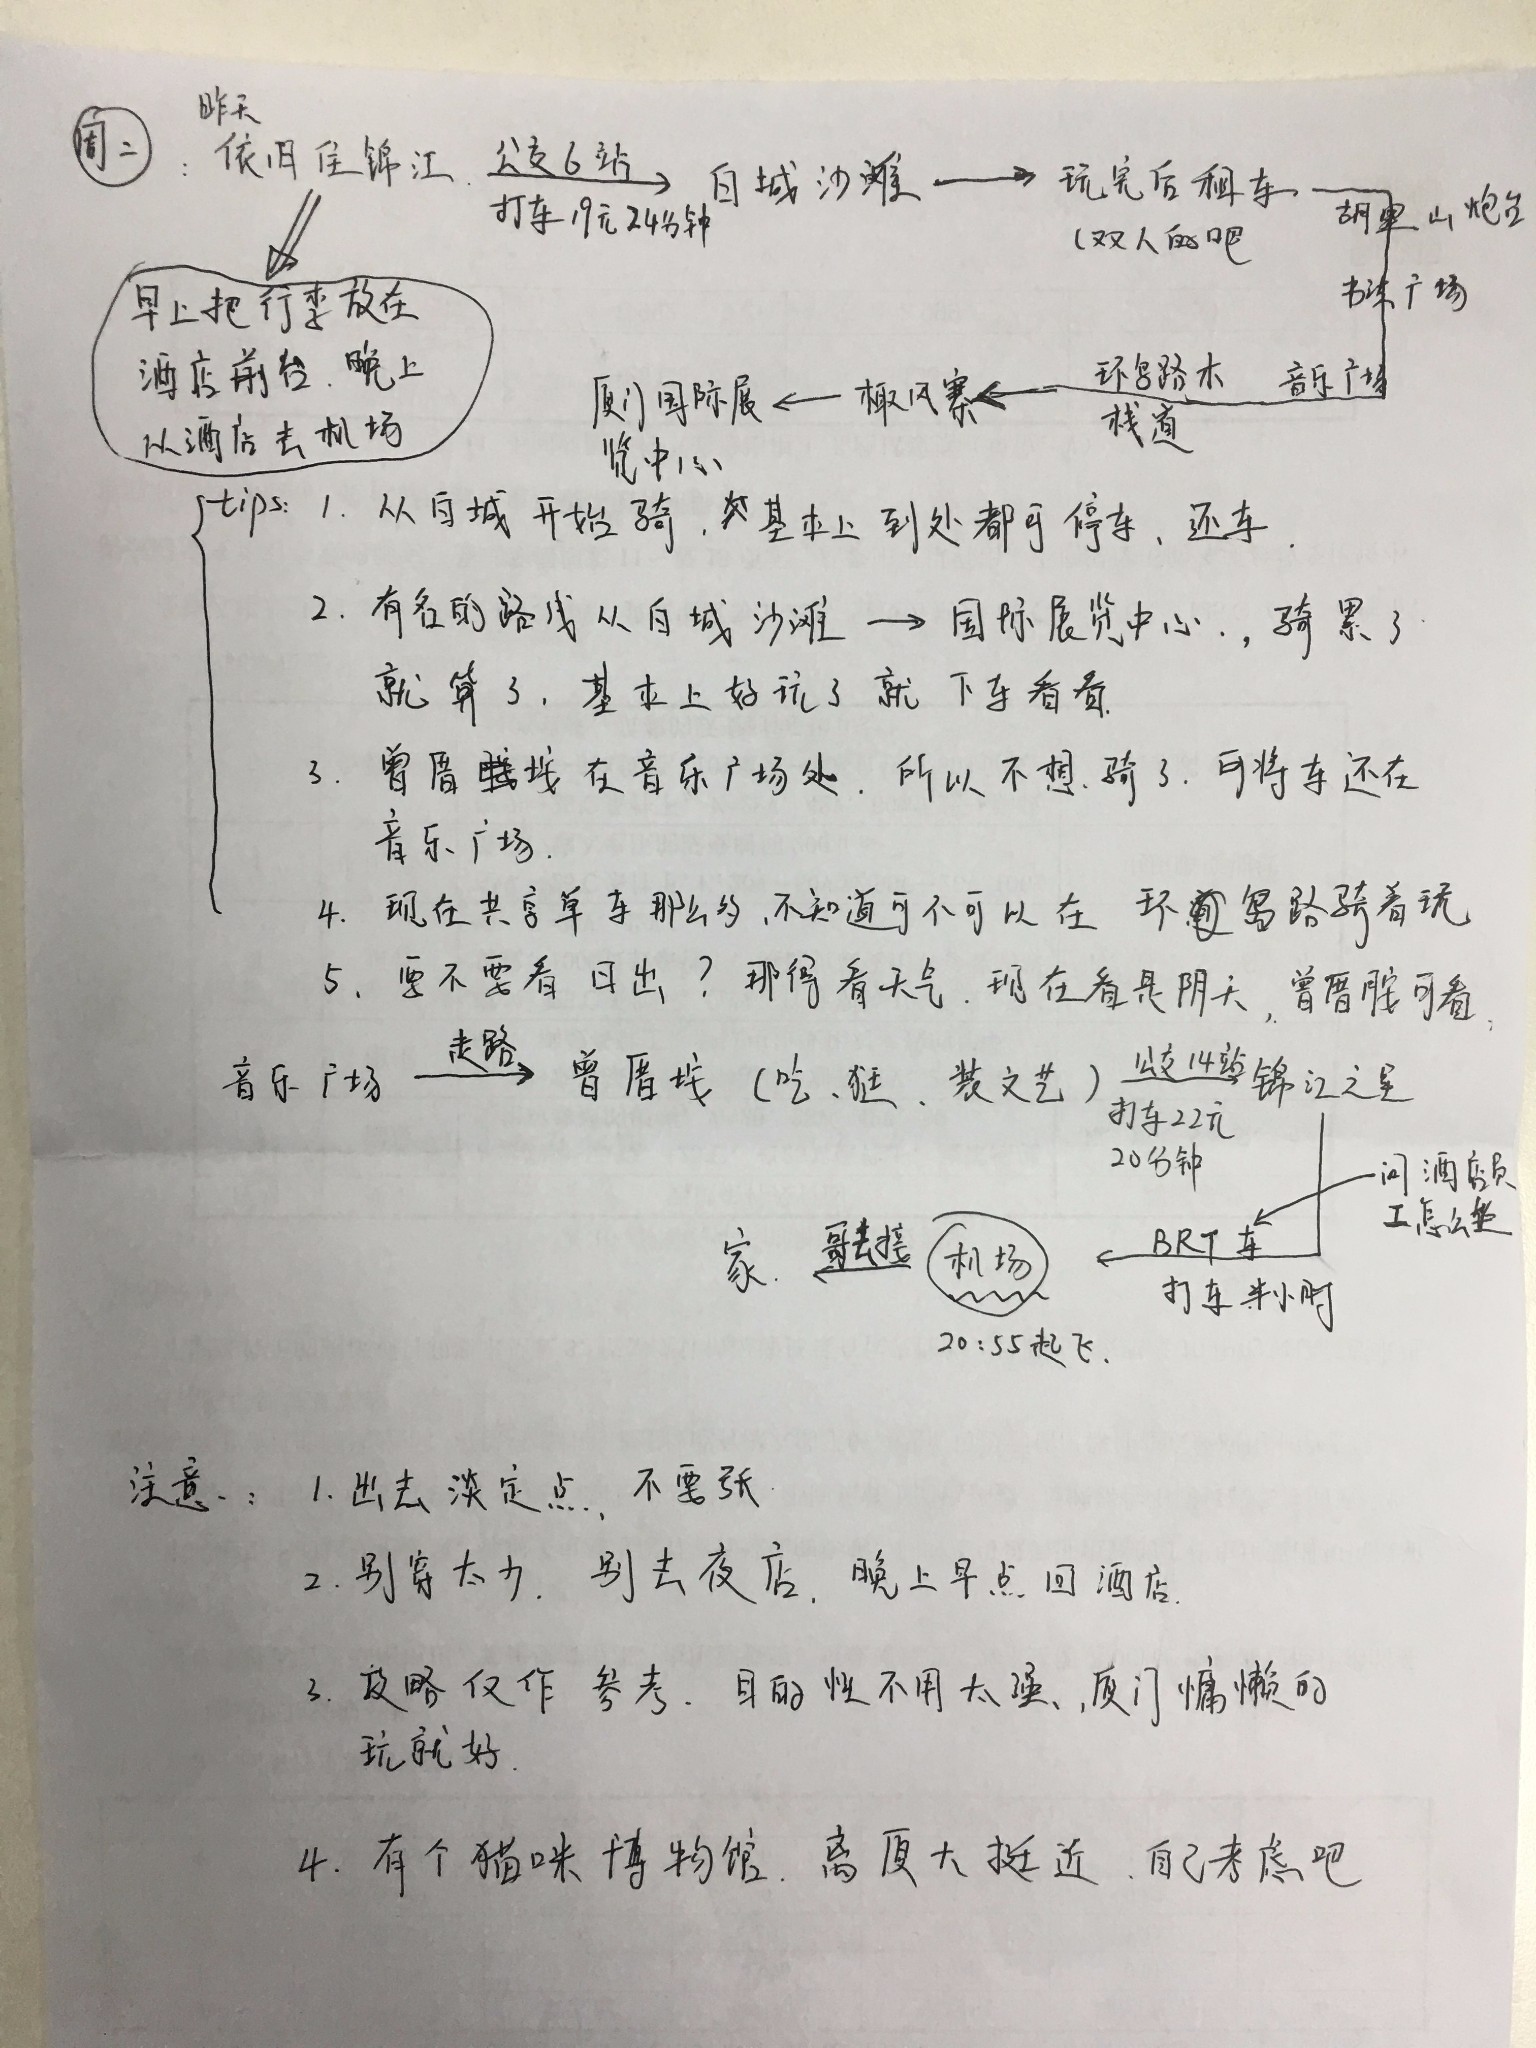 昨天
周二：依旧住锦江. 公交6站 白城沙滩 玩完后租车 胡里山炮台
打车19元24分钟 (双人的吧
书法广场
早上把行李放在
酒店前台.晚上
从酒店去机场
厦门国际展 椰风寨 环岛路木 音乐广场
览中心 栈道
tips: 1. 从白城开始骑,基本上到处都可停车、还车.
2. 有名的路线从白城沙滩→国际展览中心.,骑累了
就算了,基本上好玩了就下车看看.
3. 曾厝垵在音乐广场处.所以不想骑了.可将车还在
音乐广场.
4. 现在共享单车那么多,不知道可不可以在环岛路骑着玩
5. 要不要看日出?那得看天气.现在看是阴天,曾厝垵可看,
音乐广场 走路 曾厝垵(吃、逛、装文艺) 公交14站 锦江之星
打车22元
20分钟
问酒店员
工怎么坐
家. 哥去接 机场 BRT车
打车半小时
20:55起飞.
注意.: 1. 出去淡定点,不要妖.
2. 别穿太少.别去夜店,晚上早点回酒店.
3. 攻略仅作参考.目的性不用太强、,厦门慵懒的
玩就好.
4. 有个猫咪博物馆.离厦大挺近.自己考虑吧